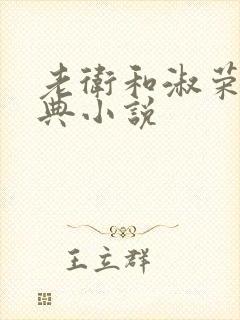 老衛和淑荣
典小說
王立群